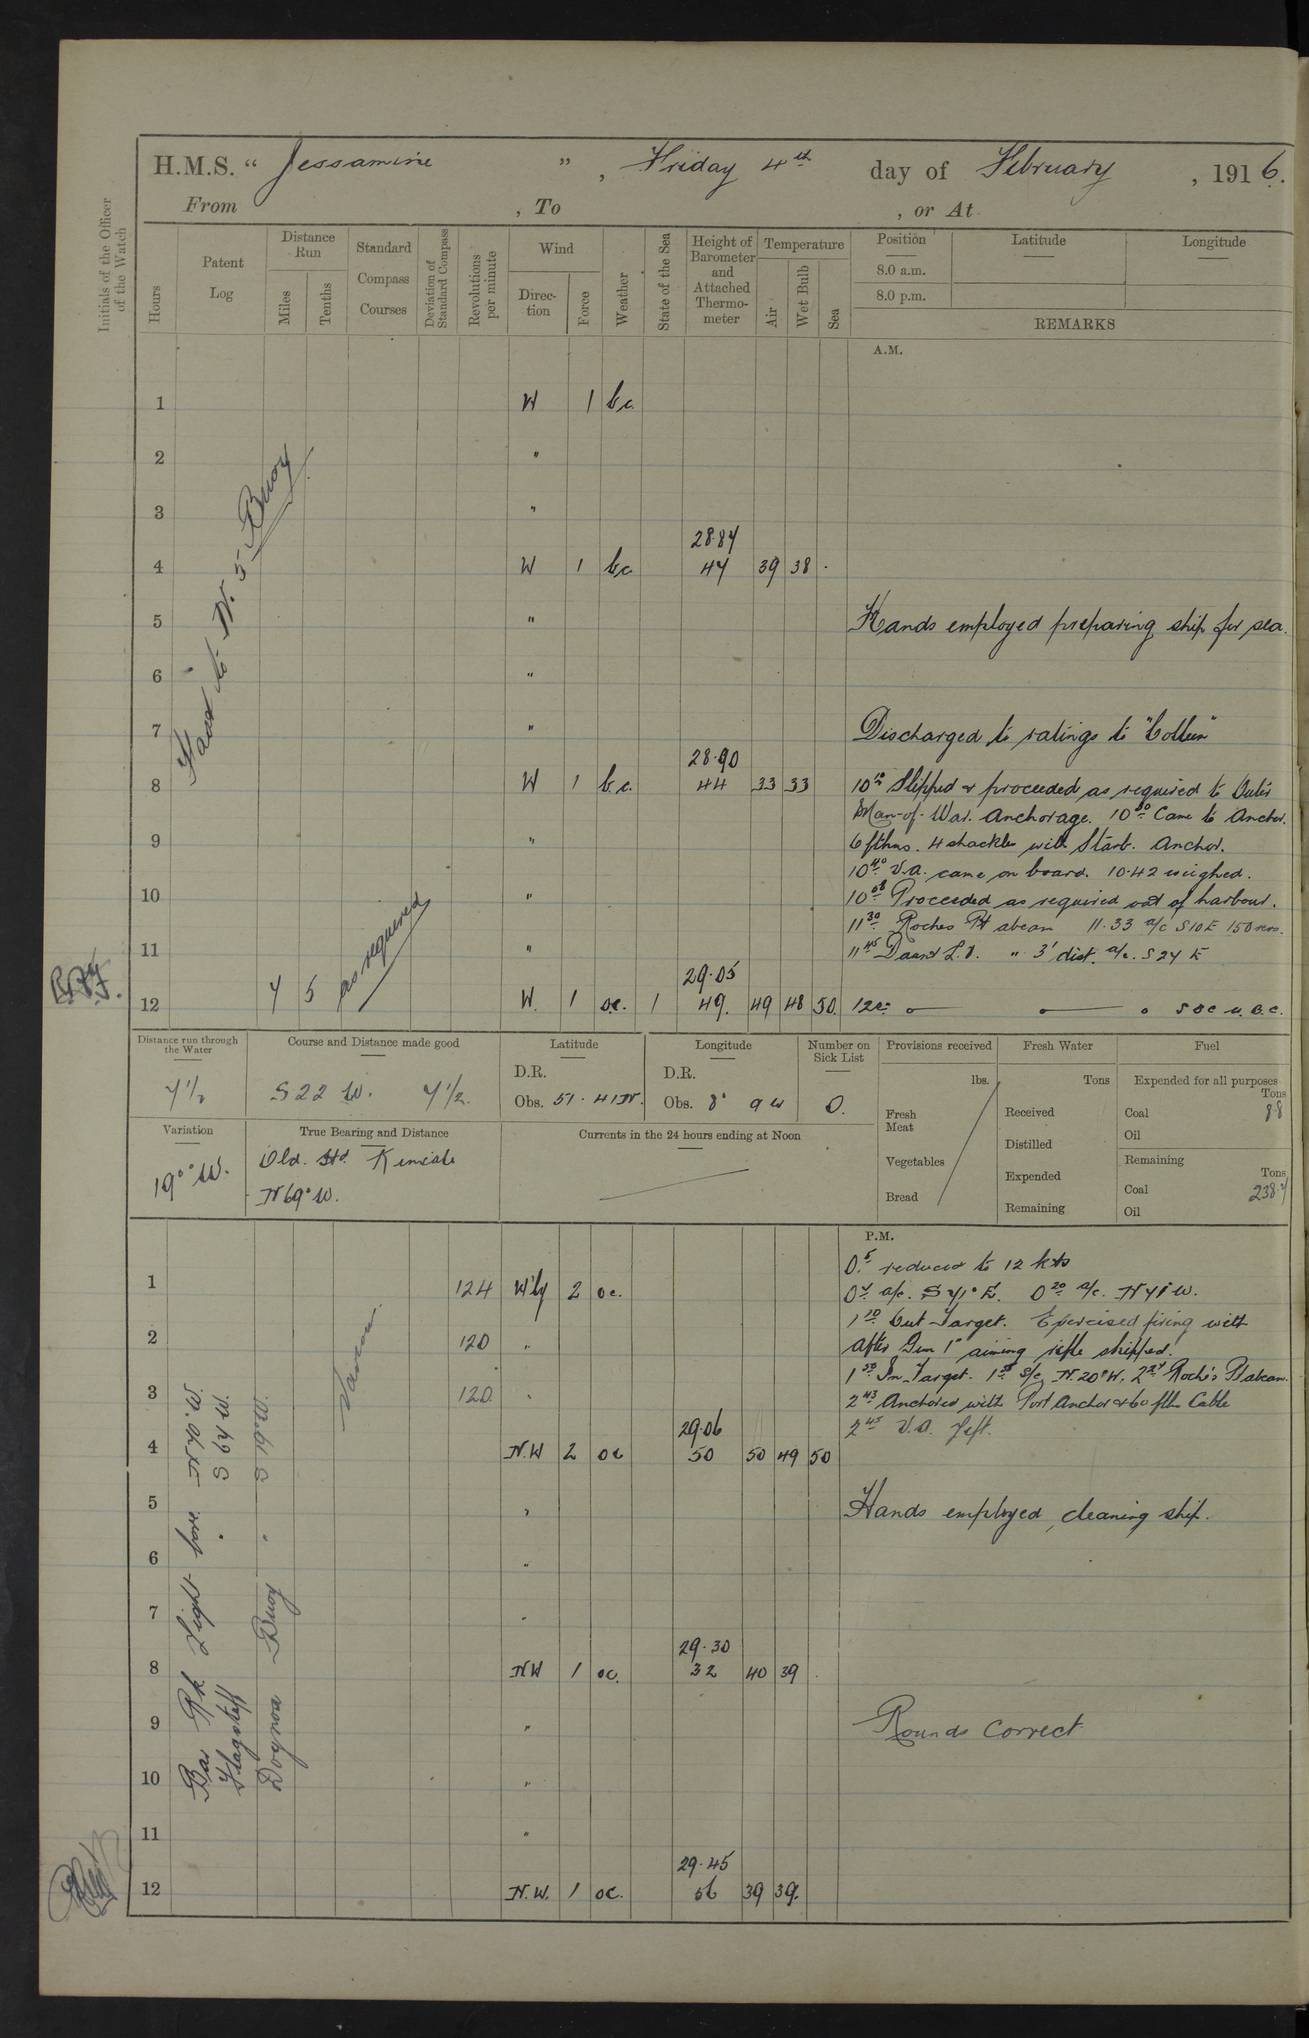 H.M.S. “ Jessamine ” , Friday 4th day of February , 1916.
From , To , or At
Initials of the Officer of the Watch
Hours
Patent Log
Distance Run
Miles
Tenths
Standard Compass Courses
Deviation of Standard Compass
Revolutions per minute
Wind
Direction
Force
Weather
State of the Sea
Height of Barometer and Attached Thermometer
Temperature
Air
Wet Bulb
Sea
Position Latitude Longitude
8.0 a.m.
8.0 p.m.
REMARKS
A.M.
1 W 1 b.c.
2 "
3 "
28.87
4 W 1 b.c. 47 39 38
5 " Hands employed preparing ship for sea
6 "
7 " Discharged ratings to "Colleen"
Fast to No. 5 Buoy
28.90
8 W 1 b.c. 44 33 33 Slipped & proceeded as required to Outer
Man-of-War. Anchorage. 10 30 Came to Anchor.
9 " 6 fthms. 4 shackles with Starb. Anchor.
10 40 V.A. came on board. 10.42 weighed.
10 " Proceeded as required out of harbour.
11 30 Roches Pt abeam 11.33 a/c S10E 150 revs.
11 " 11 45 Daunt L.V. " 3' dist. a/c. S 24 E
as required
29.05
12 7 5 W. 1 o.c. 1 49. 49 48 50. 12
Distance run through the Water
7½
Course and Distance made good
S 22 W. 7½.
Latitude
D.R.
Obs. 51. 41 N.
Longitude
D.R.
Obs. 8° 9 W
Number on Sick List
0.
Provisions received
lbs.
Fresh Meat
Vegetables
Bread
Fresh Water
Tons
Received
Distilled
Expended
Remaining
Fuel
Expended for all purposes
Tons
Coal 8.8
Oil
Remaining
Tons
Coal 238.7
Oil
Variation
19° W.
True Bearing and Distance
Old. Hd. Kinsale
N 69° W.
Currents in the 24 hours ending at Noon
P.M.
0.5 reduced to 12 kts
1 124 W'ly 2 o.c. 0 7 a/c. S 71° E. 0 20 a/c. N 71° W.
1 10 Out Target. Exercised firing with
2 120 " After Gun 1" aiming rifle shipped.
1 50 In Target. N. 20° W. Roche's Pt abeam.
3 120 " 2 43 Anchored with Port Anchor & 60 fth Cable
29.06 2 45 V.A. left.
4 N.W 2 oc 50 50 49 50
Various
5 " Hands employed, cleaning ship.
6 "
7 "
29.30
8 NW 1 oc. 32 40 39
9 " Rounds Correct
10 "
11 "
29.45
12 N.W. 1 oc. 56 39 39.
Bar Rk Light bore
Flagstaff " S 64 W.
Dognose Buoy " S 19° W.